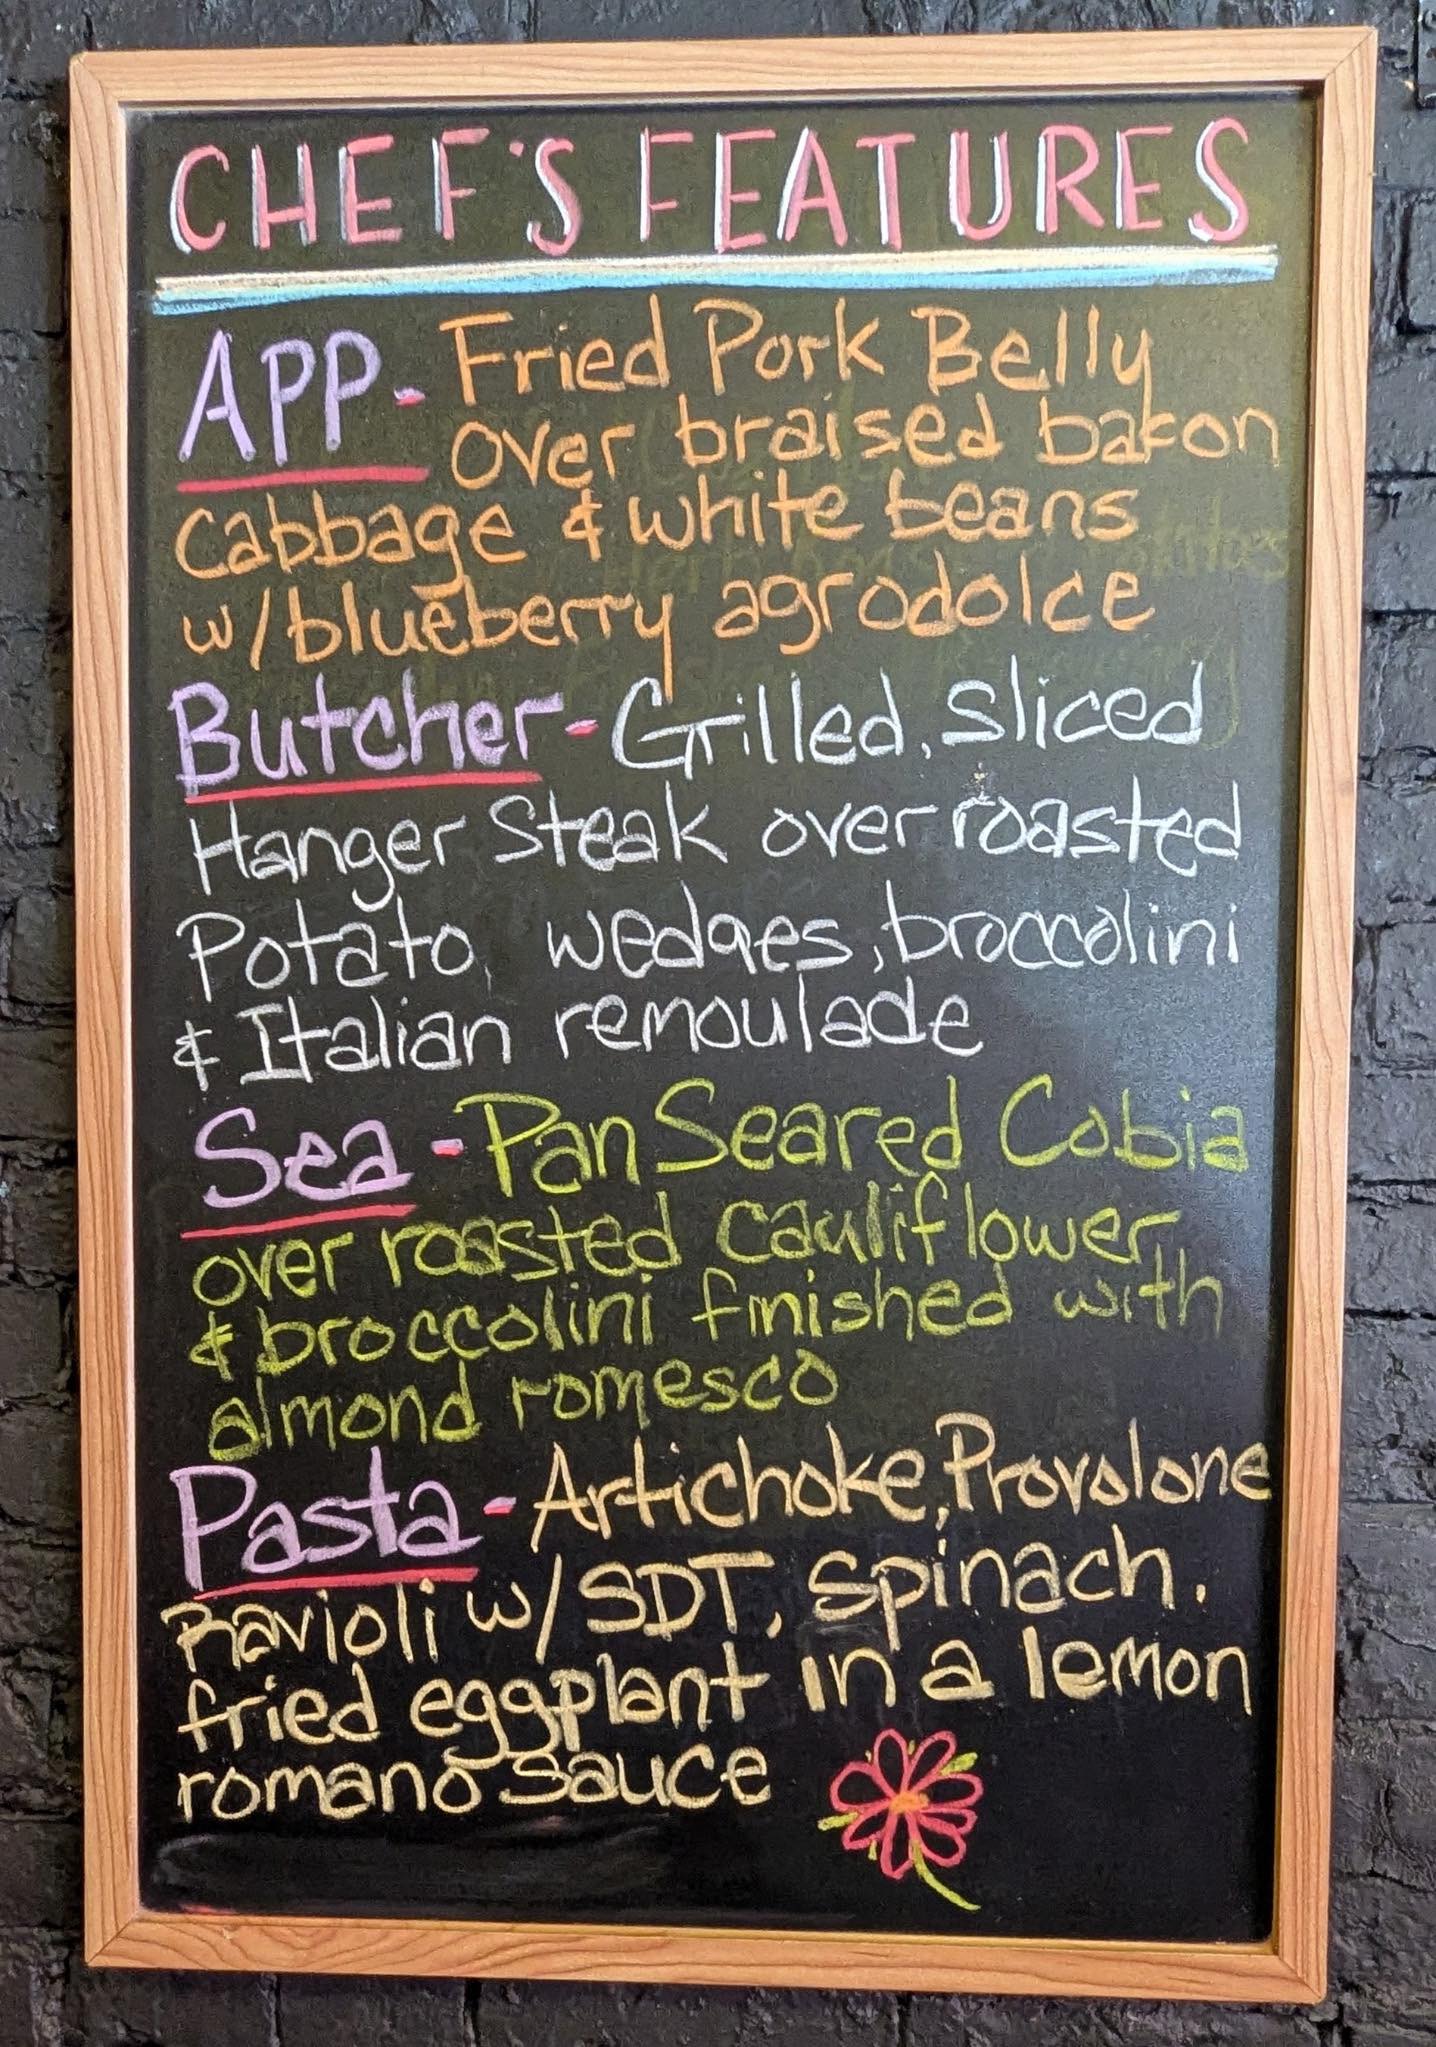 CHEF'S FEATURES
APP - Fried Pork Belly
over braised bakon
cabbage & white beans
w/blueberry agrodolce
Butcher - Grilled, Sliced
Hanger Steak over roasted
Potato, wedges, broccolini
& Italian remoulade
Sea - Pan Seared Cobia
over roasted cauliflower,
& broccolini finished with
almond romesco
Pasta - Artichoke, Provolone
Ravioli w/ SDT, spinach,
fried eggplant in a lemon
romano sauce